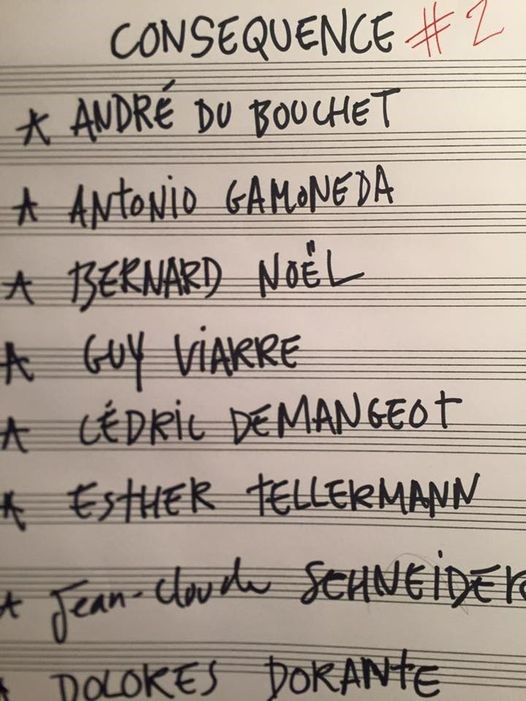 CONSEQUENCE #2
★ ANDRÉ DU BOUCHET
★ ANTONIO GAMONEDA
★ BERNARD NOËL
★ GUY VIARRE
★ CÉDRIC DEMANGEOT
★ ESTHER TELLERMANN
★ Jean-Claude SCHNEIDER
★ DOLORES DORANTE